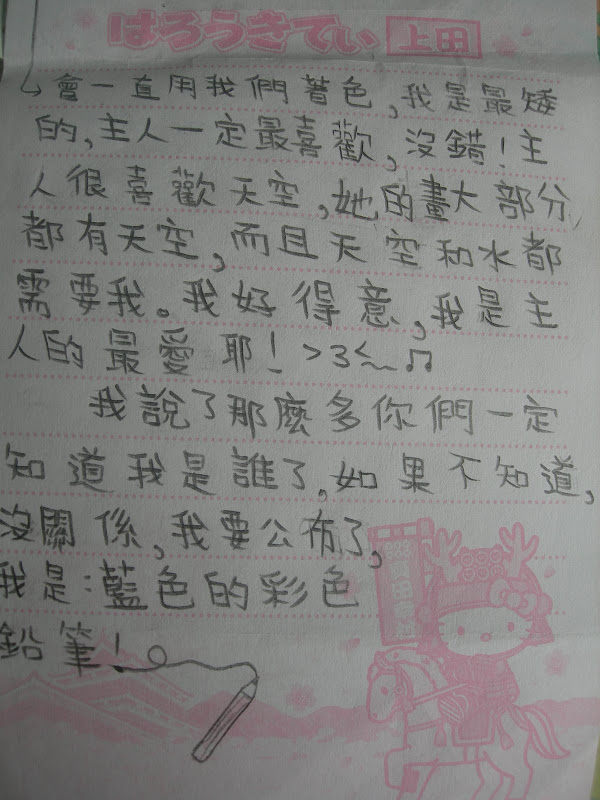 はろうきてぃ 上田
會一直用我們著色,我是最矮
的,主人一定最喜歡,沒錯!主
人很喜歡天空,她的畫大部分
都有天空,而且天空和水都
需要我。我好得意,我是主
人的最愛耶! >3<~♫
我說了那麼多你們一定
知道我是誰了。如果不知道,
沒關係,我要公佈了,
我是:藍色的彩色
鉛筆!